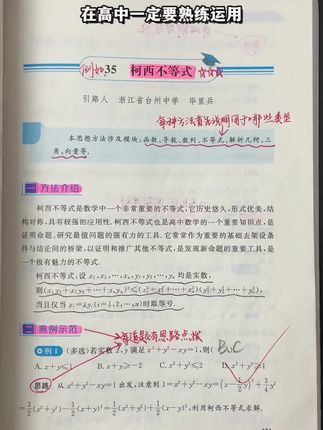 在高中一定要熟练运用
例如35 柯西不等式 ☆☆☆
引路人 浙江省台州中学 毕里兵
每种方法首先说明用于哪些类型
本思想方法涉及模块:函数、导数、数列、不等式、解析几何、三
角、向量等.
一 方法介绍
柯西不等式是数学中一个非常重要的不等式,它历史悠久,形式优美,结
构对称,具有较强的应用性.柯西不等式也是高中数学的一个重要知识点,是
证明命题、研究最值问题的强有力的工具.它常常作为重要的基础去架设条
件与结论间的桥梁,以证明和推广其他不等式,是发现新命题的重要工具,是
一个极有魅力的不等式.
柯西不等式:设 x₁,x₂,…,xₙ,y₁,y₂,…,yₙ 均是实数,
则(x₁y₁+x₂y₂+…+xₙyₙ)²≤(x₁²+x₂²+…+xₙ²)(y₁²+y₂²+…+yₙ²),
当且仅当 xᵢ=λyᵢ(i=1,2,…,n)时取等号.
二 典例示范
每道题有思路点拨
例1 (多选)若实数x,y满足x²+y²-xy=1,则( B、C
A. x+y≤1 B. x+y≥-2 C. x²+y²≤2 D. x²+y²≥1
思路 从 x²+y²-xy=1 出发,注意到 1=x²+y²-xy=(x-1/2y)²+3/4y²
=3/2(x²+y²)-1/2(x+y)²=1/2(x²+y²)+1/2(x-y)²,利用柯西不等式求解.